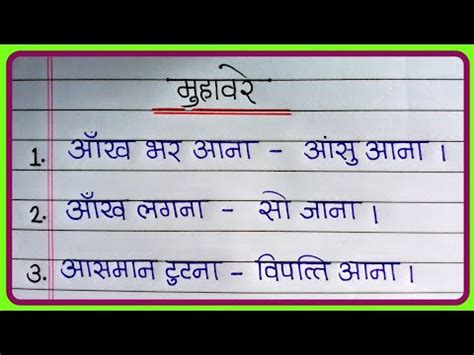 मुहावरे
1. आँख भर आना - आंसु आना ।
2. आँख लगना - सो जाना ।
3. आसमान टुटना - विपत्ति आना ।